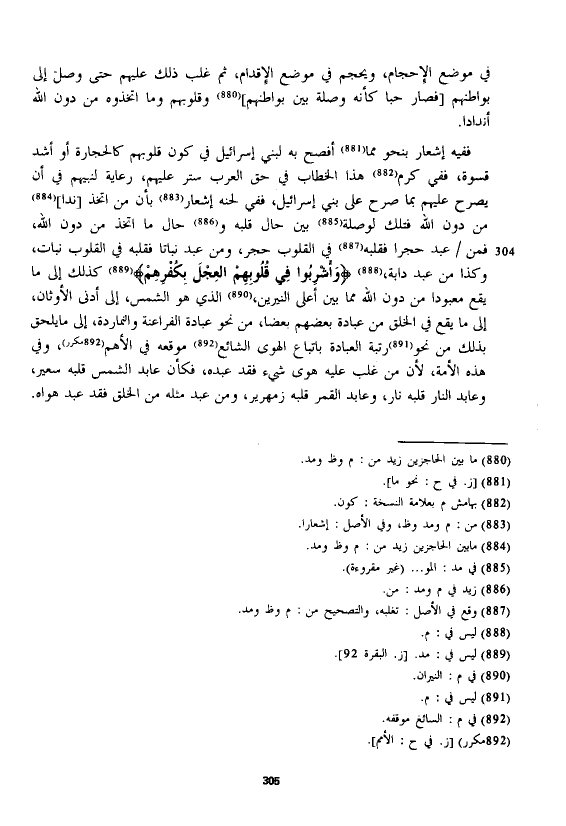 في موضع الإحجام، ويحجم في موضع الإقدام، ثم غلب ذلك عليهم حتى وصل إلى
بواطنهم [فصار حبا كأنه وصلة بين بواطنهم](880) وقلوبهم وما اتخذوه من دون الله
أندادا.
ففيه إشعار بنحو مما(881) أفصح به لبني إسرائيل في كون قلوبهم كالحجارة أو أشد
قسوة، ففي كرم(882) هذا الخطاب في حق العرب ستر عليهم، رعاية لنبيهم في أن
يصرح عليهم بما صرح على بني إسرائيل، ففي لحنه إشعار(883) بأن من اتخذ [ندا](884)
من دون الله فتلك لوصلة(885) بين حال قلبه و(886) حال ما اتخذ من دون الله،
304 فمن / عبد حجرا فقلبه(887) في القلوب حجر، ومن عبد نباتا فقلبه في القلوب نبات،
وكذا من عبد دابة،(888) ﴿وَأُشْرِبُوا فِي قُلُوبِهِمُ العِجْلَ بِكُفْرِهِمْ﴾(889) كذلك إلى ما
يقع معبودا من دون الله مما بين أعلى النيرين،(890) الذي هو الشمس، إلى أدنى الأوثان،
إلى ما يقع في الخلق من عبادة بعضهم بعضا، من نحو عبادة الفراعنة والنماردة، إلى مايلحق
بذلك من نحو(891)رتبة العبادة باتباع الهوى الشائع(892) موقعه في الأهم(892مكرر)، وفي
هذه الأمة، لأن من غلب عليه هوى شيء فقد عبده، فكأن عابد الشمس قلبه سعير،
وعابد النار قلبه نار، وعابد القمر قلبه زمهرير، ومن عبد مثله من الخلق فقد عبد هواه.
(880) ما بين الحاجزين زيد من : م وظ ومد.
(881) [ز. في ح : نحو ما].
(882) بهامش م بعلامة النسخة : كون.
(883) من : م ومد وظ، وفي الأصل : إشعارا.
(884) مابين الحاجزين زيد من : م وظ ومد.
(885) في مد : المو... (غير مقروءة).
(886) زيد في م ومد : من.
(887) وقع في الأصل : تغلبه، والتصحيح من : م وظ ومد.
(888) ليس في : م.
(889) ليس في : مد. [ز. البقرة 92].
(890) في م : النيران.
(891) ليس في : م.
(892) في م : السائغ موقفه.
(892مكرر) [ز. في ح : الأمم].
305